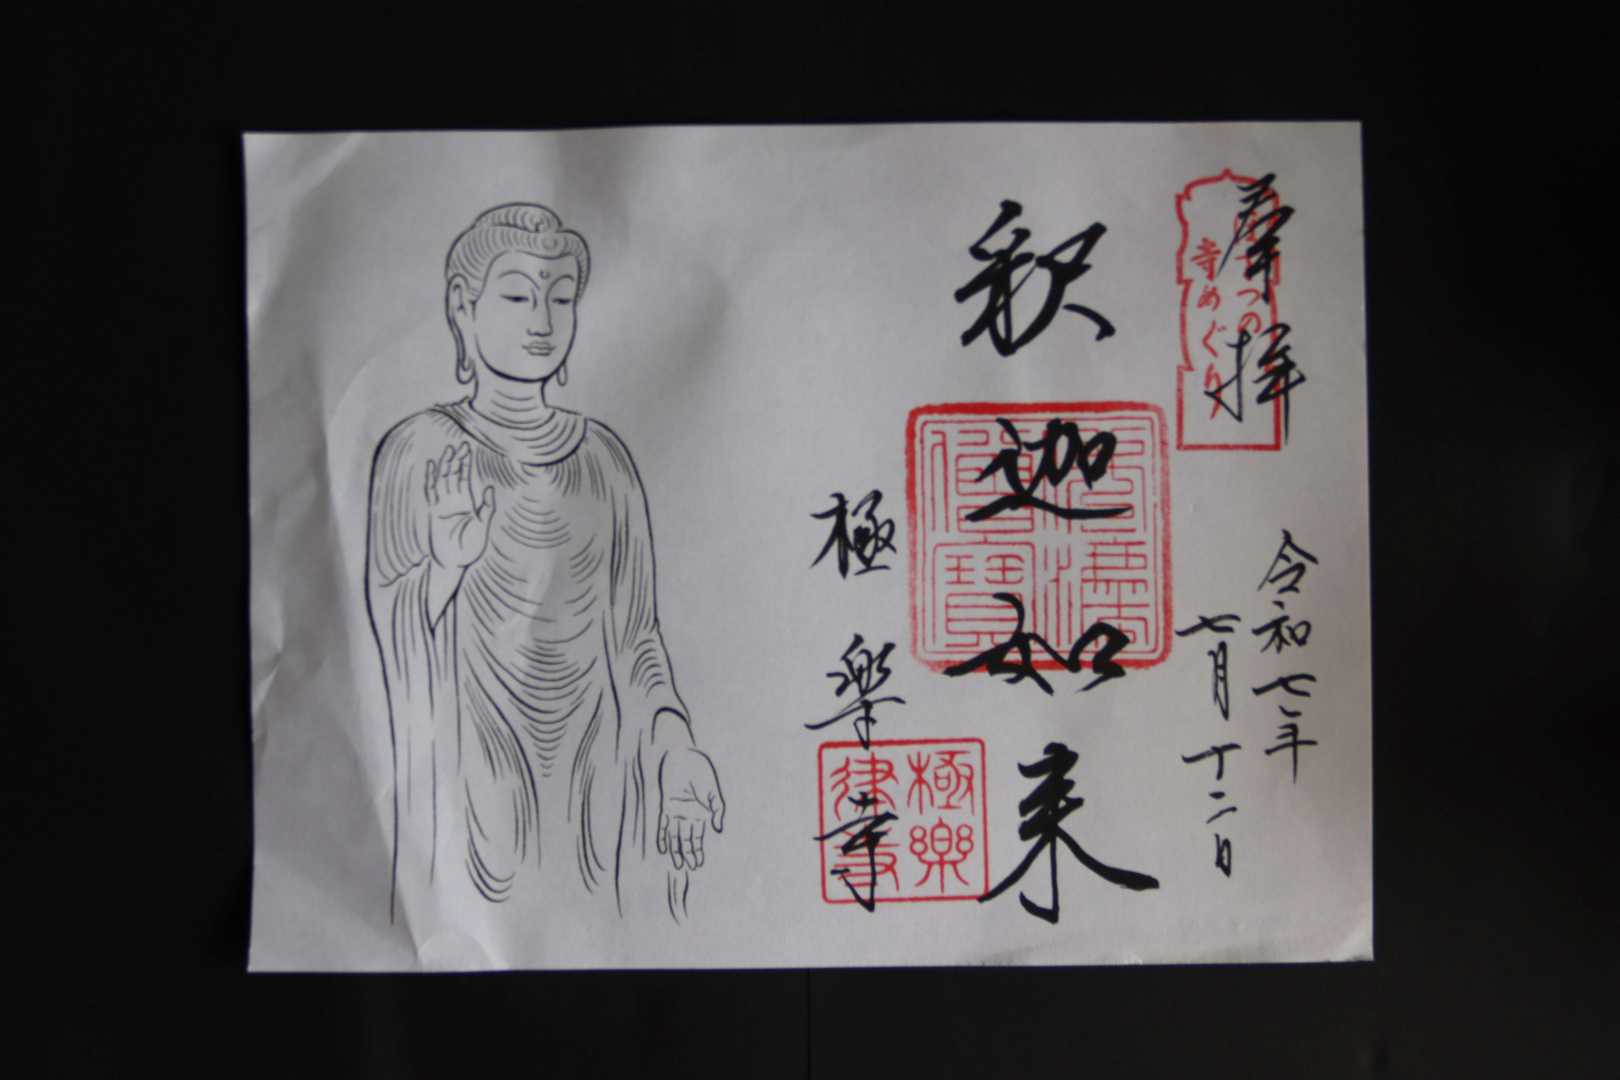 奉拝
寺めぐり
令和七年
七月十二日
釈迦如来
佛法僧寶
極楽寺
極樂
律寺